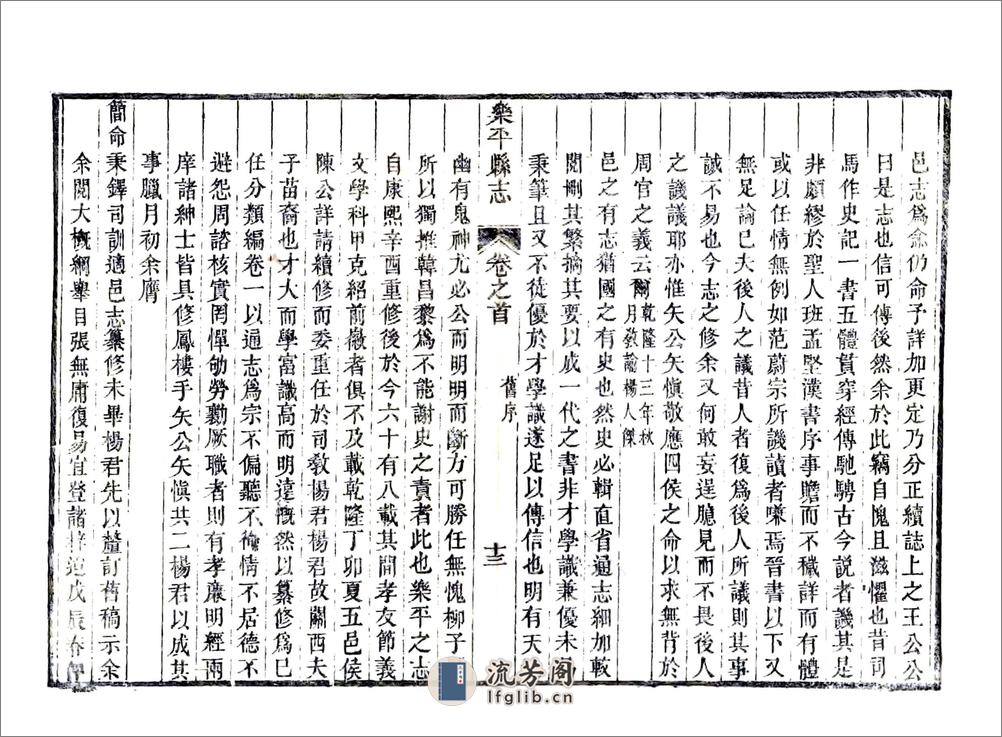 邑志爲僉仍命予詳加更定乃分正續誌上之王公公
曰是志也信可傳後然余於此竊自愧且滋懼也昔司
馬作史記一書五體貫穿經傳馳騁古今説者譏其是
非頗繆於聖人班孟堅漢書序事贍而不穢詳而有體
或以任情無例如范蔚宗所譏讀者嗛焉晉書以下又
無足論已夫後人之議昔人者復爲後人所議則其事
誠不易也今志之修余又何敢妄逞臆見而不畏後人
之譏議耶亦惟矢公矢愼敬應四侯之命以求無背於
周官之義云爾乾隆十三年秋
月敎諭楊人傑
邑之有志猶國之有史也然史必輯直省通志細加較
閱刪其繁摘其要以成一代之書非才學識兼優未易
秉筆且又不徒優於才學識遂足以傳信也明有天
樂平縣志
卷之首
舊序
十三
幽有鬼神尤必公而明明而斷方可勝任無愧柳子
所以獨推韓昌黎爲不能謝史之責者此也樂平之志
自康熙辛酉重修後於今六十有八載其間孝友節義
文學科甲克紹前徽者俱不及載乾隆丁卯夏五邑侯
陳公詳請續修而委重任於司敎楊君楊君故關西夫
子苗裔也才大而學富識高而明遠慨然以纂修爲已
任分類編卷一以通志爲宗不偏聽不徇情不居德不
避怨周諮核實罔憚劬勞勷厥職者則有孝廉明經兩
庠諸紳士皆具修鳳樓手矢公矢愼共二楊君以成其
事臘月初余膺
簡命秉鐸司訓適邑志纂修未畢楊君先以釐訂舊稿示余
余閱大槪綱舉目張無庸復易宜登諸梓迨戊辰春
流芳阁
lfglib.cn